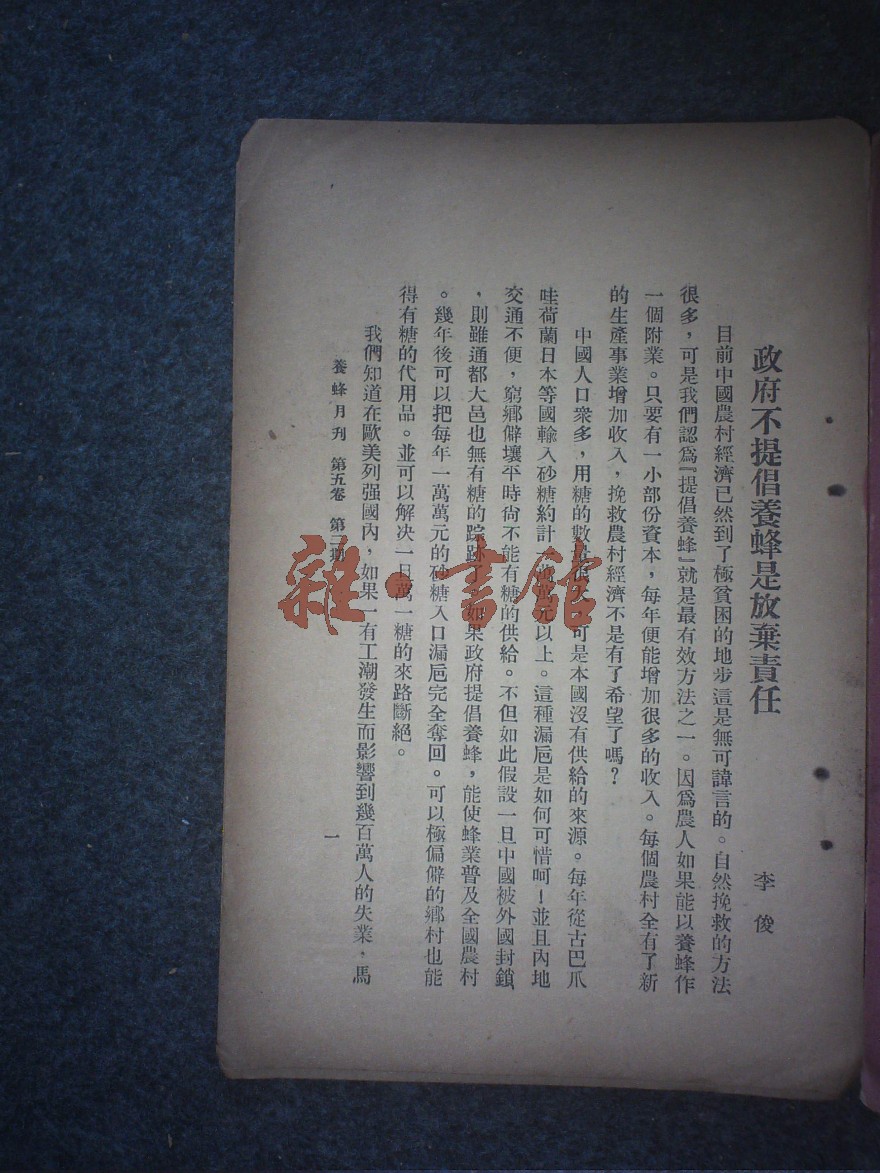 政府不提倡養蜂是放棄責任
李俊
目前中國農村經濟已然到了極貧困的地步這是無可諱言的。自然挽救的方法
很多，可是我們認爲『提倡養蜂』就是最有效方法之一。因爲農人如果能以養蜂作
一個附業。只要有一小部份資本，每年便能增加很多的收入。每個農村全有了新
的生產事業增加收入，挽救農村經濟不是有了希望了嗎？
中國人口衆多，用糖的數量很大，可是本國沒有供給的來源。每年從古巴爪
哇荷蘭日本等國輸入砂糖約計一萬萬元以上。這種漏巵是如何可惜呵！並且內地
交通不便，窮鄉僻壤平時尙不能有糖的供給。不但如此假設一旦中國被外國封鎖
，則雖通都大邑也無有糖的踪跡了如果政府提倡養蜂，能使蜂業普及全國農村
。幾年後可以把每年一萬萬元的砂糖入口漏巵完全奪回。可以極偏僻的鄉村也能
得有糖的代用品。並可以解决一旦萬一糖的來路斷絕。
我們知道在歐美列强國內，如果一有工潮發生而影響到幾百萬人的失業，馬
養蜂月刊 第五卷 第二期
一
雜·書館